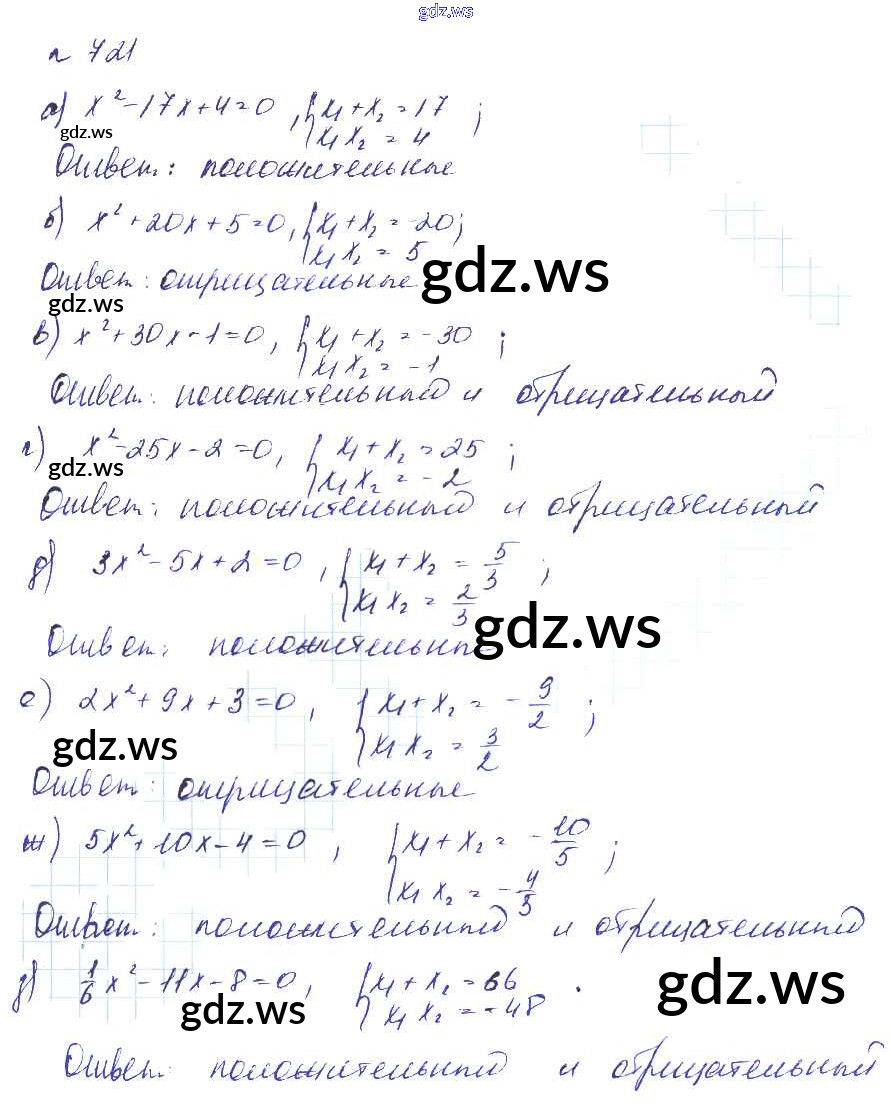 gdz.ws
n 721
а) x² - 17x + 4 = 0 , { x₁ + x₂ = 17 ;
gdz.ws x₁ x₂ = 4
Ответ: положительные
б) x² + 20x + 5 = 0, { x₁ + x₂ = -20;
x₁ x₂ = 5
Ответ: отрицательные gdz.ws
gdz.ws
в) x² + 30x - 1 = 0, { x₁ + x₂ = -30 ;
x₁ x₂ = -1
Ответ: положительный и отрицательный
г) x² - 25x - 2 = 0, { x₁ + x₂ = 25 ;
gdz.ws x₁ x₂ = -2
Ответ: положительный и отрицательный
д) 3x² - 5x + 2 = 0 , { x₁ + x₂ = 5/3 ;
x₁ x₂ = 2/3
Ответ: положительные gdz.ws
е) 2x² + 9x + 3 = 0 , { x₁ + x₂ = -9/2 ;
gdz.ws x₁ x₂ = 3/2
Ответ: отрицательные
ж) 5x² + 10x - 4 = 0 , { x₁ + x₂ = -10/5 ;
x₁ x₂ = -4/5
Ответ: положительный и отрицательный
з) 1/6 x² - 11x - 8 = 0, { x₁ + x₂ = 66 .
gdz.ws x₁ x₂ = -48 gdz.ws
Ответ: положительный и отрицательный